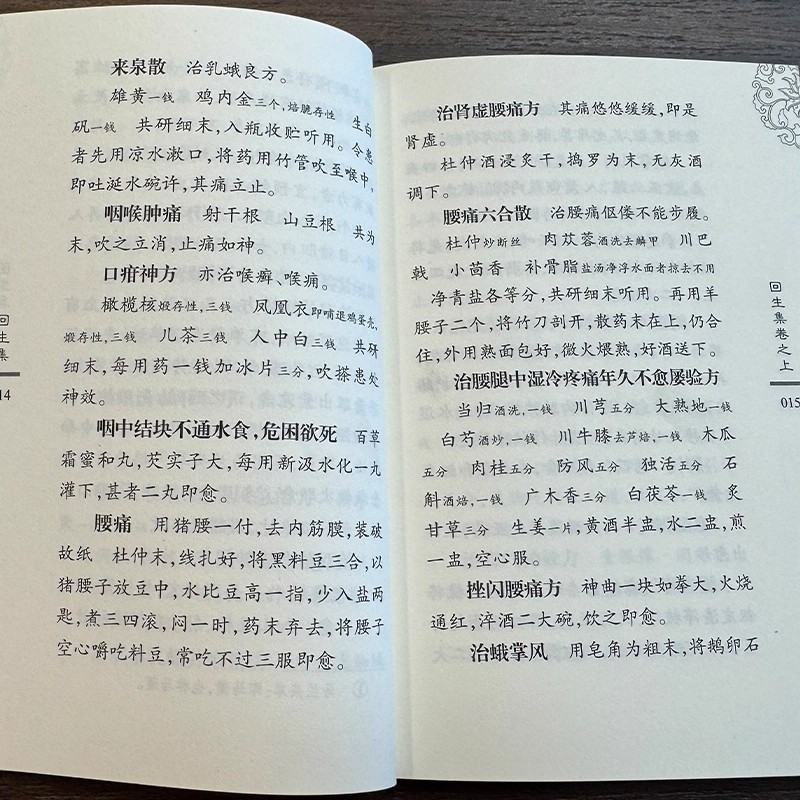 来泉散 治乳蛾良方。
雄黄一钱 鸡内金三个,焙脆存性 生白
矾一钱 共研细末,入瓶收贮听用。令患
者先用凉水漱口,将药用竹管吹至喉中,
即吐涎水碗许,其痛立止。
咽喉肿痛 射干根 山豆根 共为
末,吹之立消,止痛如神。
口疳神方 亦治喉癣、喉痈。
橄榄核煅存性,三钱 凤凰衣即哺退鸡蛋壳,
煅存性,三钱 儿茶三钱 人中白三钱 共研
细末,每用药一钱加冰片三分,吹搽患处
神效。
咽中结块不通水食,危困欲死 百草
霜蜜和丸,芡实子大,每用新汲水化一丸
灌下,甚者二丸即愈。
腰痛 用猪腰一付,去内筋膜,装破
故纸 杜仲末,线扎好,将黑料豆三合,以
猪腰子放豆中,水比豆高一指,少入盐两
匙,煮三四滚,闷一时,药末弃去,将腰子
空心嚼吃料豆,常吃不过三服即愈。
回生集
14
治肾虚腰痛方 其痛悠悠缓缓,即是
肾虚。
杜仲酒浸炙干,捣罗为末,无灰酒
调下。
腰痛六合散 治腰痛伛偻不能步履。
杜仲炒断丝 肉苁蓉酒洗去鳞甲 川巴
戟 小茴香 补骨脂盐汤净浮水面者掠去不用
净青盐各等分,共研细末听用。再用羊
腰子二个,将竹刀剖开,散药末在上,仍合
住,外用熟面包好,微火煨熟,好酒送下。
治腰腿中湿冷疼痛年久不愈屡验方
当归酒洗,一钱 川芎五分 大熟地一钱
白芍酒炒,一钱 川牛膝去芦焙,一钱 木瓜
五分 肉桂五分 防风五分 独活五分 石
斛酒焙,一钱 广木香三分 白茯苓一钱 炙
甘草三分 生姜一片,黄酒半盅,水二盅,煎
一盅,空心服。
挫闪腰痛方 神曲一块如拳大,火烧
通红,淬酒二大碗,饮之即愈。
治蛾掌风 用皂角为粗末,将鹅卵石
回生集卷之上
015